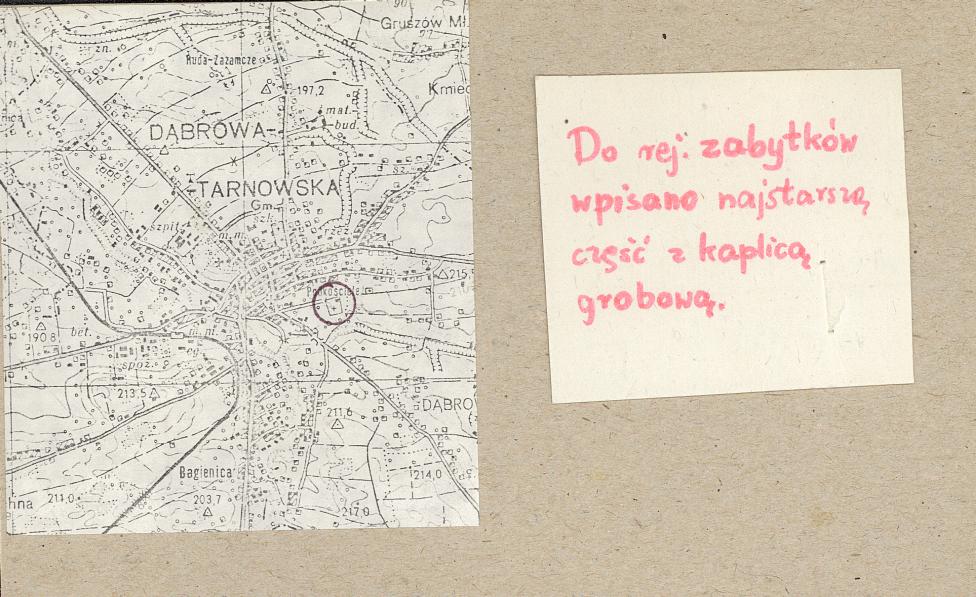 Gruszów Mł.
zn.
Ruda-Zazamcze
197,2
Kmie
mat.
bud.
DĄBROWA-
-TARNOWSKA
Gm.
szk.
sz.
szpit.
m.n.
rzeź.
215,
Podkościele
bet.
190,8
m.n.
cg.
spoż.
213,5
211,6
DĄBRO
Bagienica
211,0
203,7
214,0
217,0
hna
Do rej. zabytków
wpisano najstarszą
część z kaplicą
grobową.